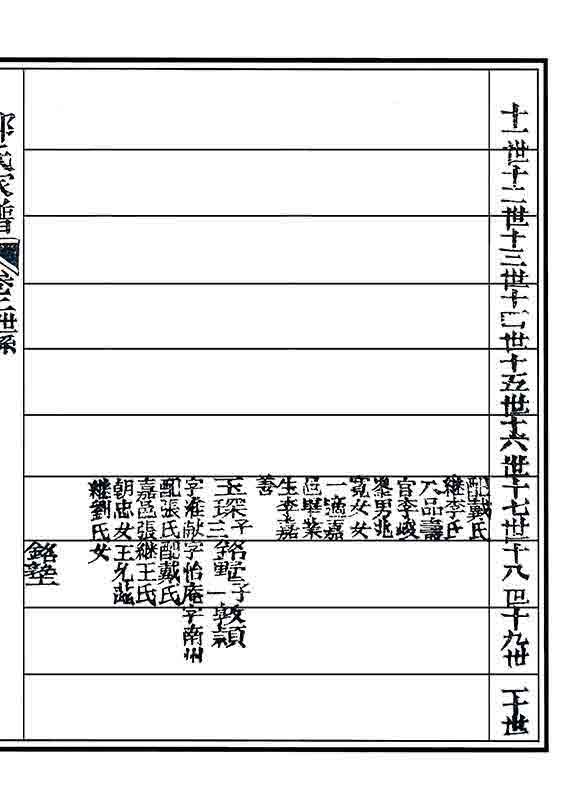 十一世
十二世
十三世
十四世
十五世
十六世
十七世
十八世
十九世
二十世
配戴氏
継李氏
八品壽
官李峻
男兆
寬女女
一適嘉
邑畢業
生李嘉
善
玉琛子
字淮猷
配張氏
嘉邑張
朝忠女
継劉氏女
銘野子
字怡庵
配戴氏
継王氏
王允
銘塾
敦頴
字南州
氏家譜
卷二世系